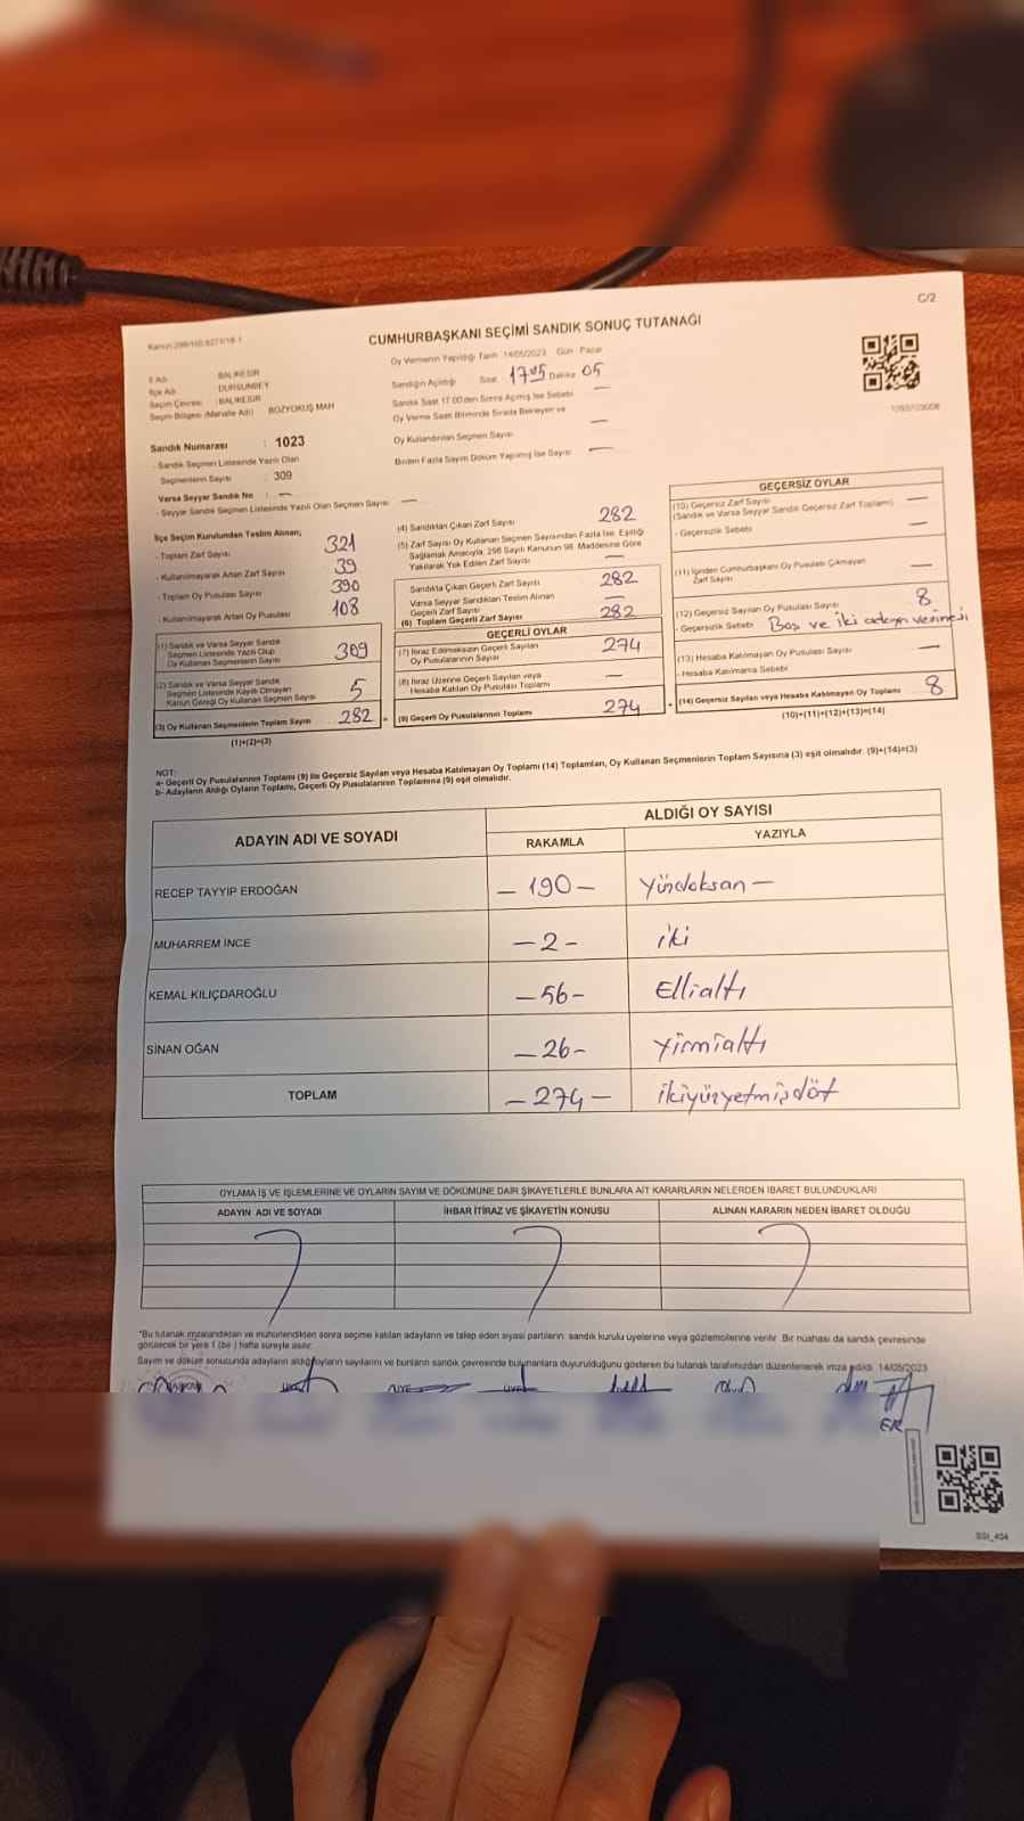 C/2
CUMHURBAŞKANI SEÇİMİ SANDIK SONUÇ TUTANAĞI
Oy Vermenin Yapıldığı Tarih : 14/05/2023 Gün : Pazar
İl Adı : BALIKESİR
İlçe Adı : DURSUNBEY
Seçim Çevresi : BALIKESİR
Seçim Bölgesi (Mahalle Adı) : BOZYOKUŞ MAH
Sandık Numarası : 1023
- Sandık Seçmen Listesinde Yazılı Olan
Seçmenlerin Sayısı : 309
Varsa Seyyar Sandık No : —
- Seyyar Sandık Seçmen Listesinde Yazılı Olan Seçmen Sayısı : —
Sandığın Açıldığı Saat 1705 Dakika 05
Sandık Saat 17.00'den Sonra Açılmış İse Sebebi —
Oy Verme Saati Bitiminde Sırada Bekleyen ve
Oy Kullandırılan Seçmen Sayısı —
Birden Fazla Sayım Döküm Yapılmış İse Sayısı —
İlçe Seçim Kurulundan Teslim Alınan;
- Toplam Zarf Sayısı 321
- Kullanılmayarak Artan Zarf Sayısı 39
- Toplam Oy Pusulası Sayısı 390
- Kullanılmayarak Artan Oy Pusulası 108
(1) Sandık ve Varsa Seyyar Sandık
Seçmen Listesinde Yazılı Olup
Oy Kullanan Seçmenlerin Sayısı 309
(2) Sandık ve Varsa Seyyar Sandık
Seçmen Listesinde Kayıtlı Olmayan
Kanun Gereği Oy Kullanan Seçmen Sayısı 5
(3) Oy Kullanan Seçmenlerin Toplam Sayısı 282
(1)+(2)=(3)
(4) Sandıktan Çıkan Zarf Sayısı 282
(5) Zarf Sayısı Oy Kullanan Seçmen Sayısından Fazla İse, Eşitliği
Sağlamak Amacıyla, 298 Sayılı Kanunun 98. Maddesine Göre
Yakılarak Yok Edilen Zarf Sayısı —
Sandıkta Çıkan Geçerli Zarf Sayısı 282
Varsa Seyyar Sandıktan Teslim Alınan
Geçerli Zarf Sayısı —
(6) Toplam Geçerli Zarf Sayısı 282
GEÇERLİ OYLAR
(7) İtiraz Edilmeksizin Geçerli Sayılan
Oy Pusulalarının Sayısı 274
(8) İtiraz Üzerine Geçerli Sayılan veya
Hesaba Katılan Oy Pusulası Toplamı —
(9) Geçerli Oy Pusulalarının Toplamı 274
GEÇERSİZ OYLAR
(10) Geçersiz Zarf Sayısı
(Sandık ve Varsa Seyyar Sandık Geçersiz Zarf Toplamı) —
- Geçersizlik Sebebi —
(11) İçinden Cumhurbaşkanı Oy Pusulası Çıkmayan
Zarf Sayısı —
(12) Geçersiz Sayılan Oy Pusulası Sayısı 8
- Geçersizlik Sebebi Boş ve iki adaya verilmesi
(13) Hesaba Katılmayan Oy Pusulası Sayısı —
- Hesaba Katılmama Sebebi
(14) Geçersiz Sayılan veya Hesaba Katılmayan Oy Toplamı 8
(10)+(11)+(12)+(13)=(14)
NOT:
a- Geçerli Oy Pusulalarının Toplamı (9) ile Geçersiz Sayılan veya Hesaba Katılmayan Oy Toplamı (14) Toplamları, Oy Kullanan Seçmenlerin Toplam Sayısına (3) eşit olmalıdır. (9)+(14)=(3)
b- Adayların Aldığı Oyların Toplamı, Geçerli Oy Pusulalarının Toplamına (9) eşit olmalıdır.
ADAYIN ADI VE SOYADI
ALDIĞI OY SAYISI
RAKAMLA YAZIYLA
RECEP TAYYİP ERDOĞAN — 190 — Yüzdoksan —
MUHARREM İNCE — 2 - iki
KEMAL KILIÇDAROĞLU — 56 - Ellialtı
SİNAN OĞAN — 26 - Yirmialtı
TOPLAM — 274 — ikiyüzyetmişdöt
OYLAMA İŞ VE İŞLEMLERİNE VE OYLARIN SAYIM VE DÖKÜMÜNE DAİR ŞİKAYETLERLE BUNLARA AİT KARARLARIN NELERDEN İBARET BULUNDUKLARI
ADAYIN ADI VE SOYADI İHBAR İTİRAZ VE ŞİKAYETİN KONUSU ALINAN KARARIN NEDEN İBARET OLDUĞU
*Bu tutanak imzalandıktan ve mühürlendikten sonra seçime katılan adayların ve talep eden siyasi partilerin sandık kurulu üyelerine veya gözlemcilerine verilir. Bir nüshası da sandık çevresinde
görülecek bir yere 1 (bir) hafta süreyle asılır.
Sayım ve döküm sonucunda adayların aldığı oyların sayılarını ve bunların sandık çevresinde bulunanlara duyurulduğunu gösteren bu tutanak tarafımızdan düzenlenerek imza edildi. 14/05/2023
ER